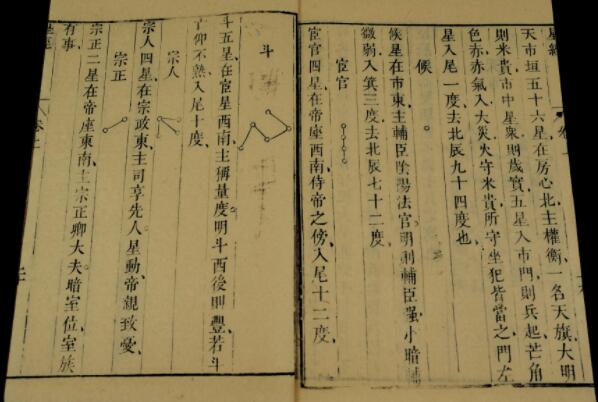 星經
天市垣五十六星在房心北主權衡一名天旗大明
則米貴市中星衆則歲實五星入市門則兵起芒角
色赤赤氣入大災火守米貴所守坐犯皆當之門左
星入尾一度去北辰九十四度也
候
候星在市東主輔臣陰陽法官明則輔臣强小暗輔
微弱入箕三度去北辰七十二度
宦官
宦官四星在帝座西南侍帝之傍入尾十二度
斗
斗五星在宦星西南主稱量度明斗西後則豐若斗
仰不熟入尾十度
宗人
宗人四星在宗政東主司享先人星動帝親致憂
宗正
宗正二星在帝座東南主宗正卿大夫暗室位室族
有事